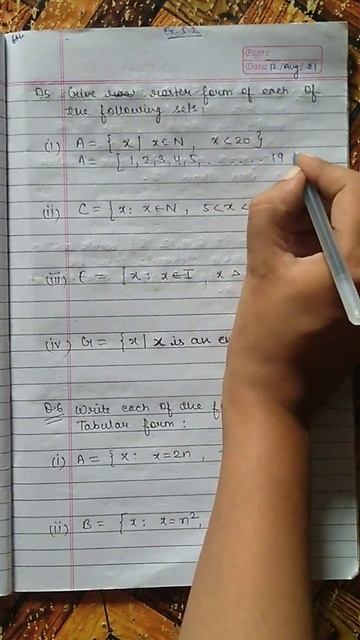 6th
Ex-5.2
Page:
Date: 12/Aug/21
Q5 Give roster form of each of
the following sets:
(i) A = { x | x∈N, x<20}
A = {1,2,3,4,5,.......19
(ii) C = {x: x∈N, 5<x<
(iii) E = {x: x∈I, x
(iv) G = {x | x is an
Q.6 Write each of the
Tabular form:
(i) A = {x: x=2n,
(ii) B = {x: x=n²,